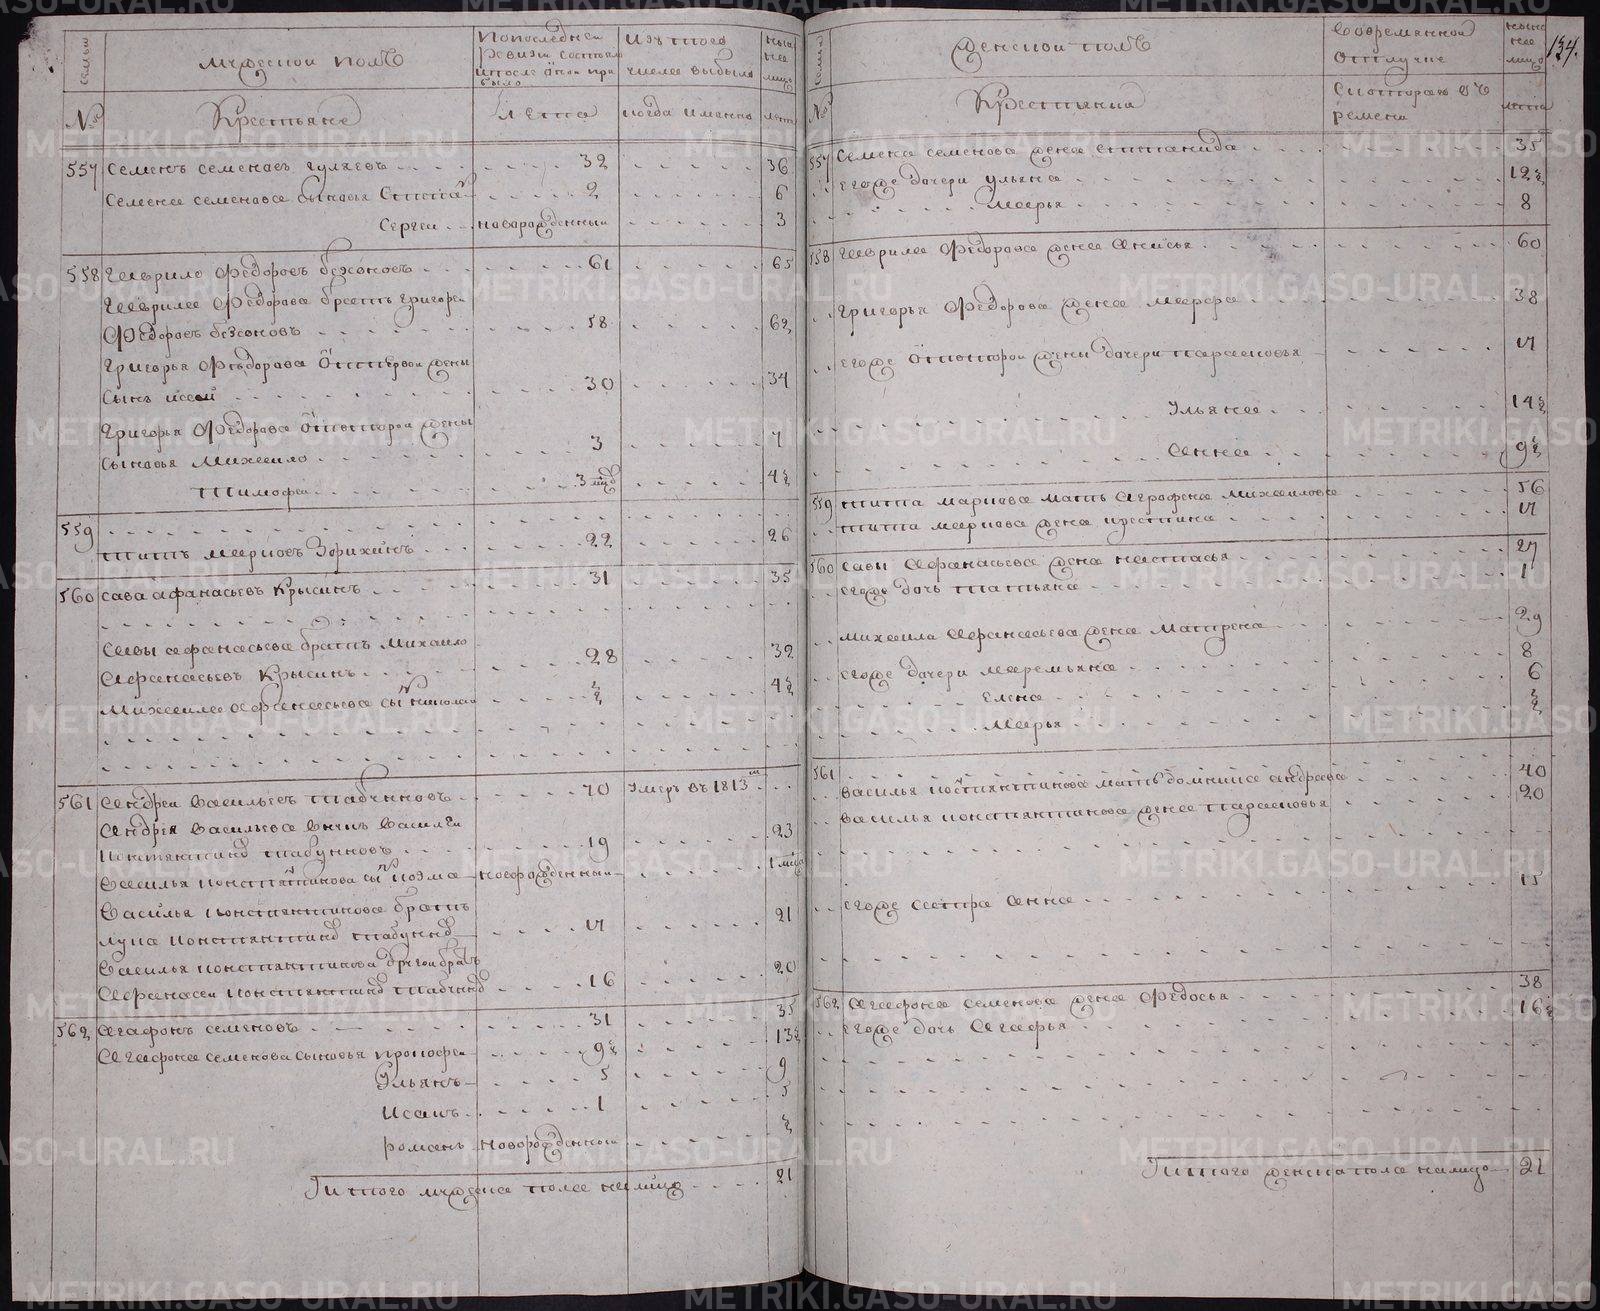 134.
семьи
мужеской полъ
по последней ревизи состояло и после оной прибыло
изъ того числа выбыло
ныне на лицо
№
Крестьяне
Лета
когда имянно
лета
557 Семенъ семеновъ гуляевъ 32 36
Семена семенова сыновья 2 6
Сергеи новорожденный 3
558 Гаврило Федоровъ безсоновъ 61 65
Гаврила Федорова братъ григореи
Федоровъ безсоновъ 58 62
Григорья Федорова от первой жены
сынъ исай 30 34
Григорья Федорова от второй жены
сыновья Михаило 3 7
Тимофеи 4½
559
титъ марковъ Зорихинъ 22 26
560 сава афанасьевъ Крысинъ 31 35
Савы афанасьева братъ Михаило
Афанасьевъ Крысинъ 28 32
Михаила Афанасьева сынъ николаи ½ 4½
561 Андреи васильевъ табунновъ 70 умеръ въ 1813м
Андрея васильева внукъ василеи
константиновъ табунновъ 19 23
василья константинова сынъ козма новорожденный
василья константинова братъ
лука константиновъ табунновъ 17 21
василья константинова другой братъ
Афанасеи константиновъ табунновъ 16 20
562 Агафонъ семеновъ 31 35
Агафона семенова сыновья прокофеи 9½ 13½
Ульянъ 5 9
Исакъ 1 5
романъ новорожденный ½
Итого мужеска пола налицо 21
семьи
женской полъ
во временной отлучке
ныне на лицо
№
Крестьяния
с котораго времени
лета
557 Семена семенова жена степанида 35
егожъ дочери ульяна 12½
Марья 8
558 Гаврила Федорова жена Анисья 60
Григорья Федорова жена марфа 38
егожъ от второй жены дочери парасковья 17
Ульяна 14½
Анна 9½
559 тита маркова мать Аграфена Михаилова 56
тита маркова жена кристина 17
560 савы Афанасьева жена настасья 27
егожъ дочь татьяна 1
Михаила Афанасьева жена Матрена 29
егожъ дочери маремьяна 8
Елена 6
Марья ½
561 василья константинова мать домника андреева 40
василья константинова жена парасковья 20
егожъ сестра анна 15
562 Агафона семенова жена Федосья 38
егожъ дочь Агафья 16½
Итого женска пола налицо 21
METRIKI.GASO-URAL.RU